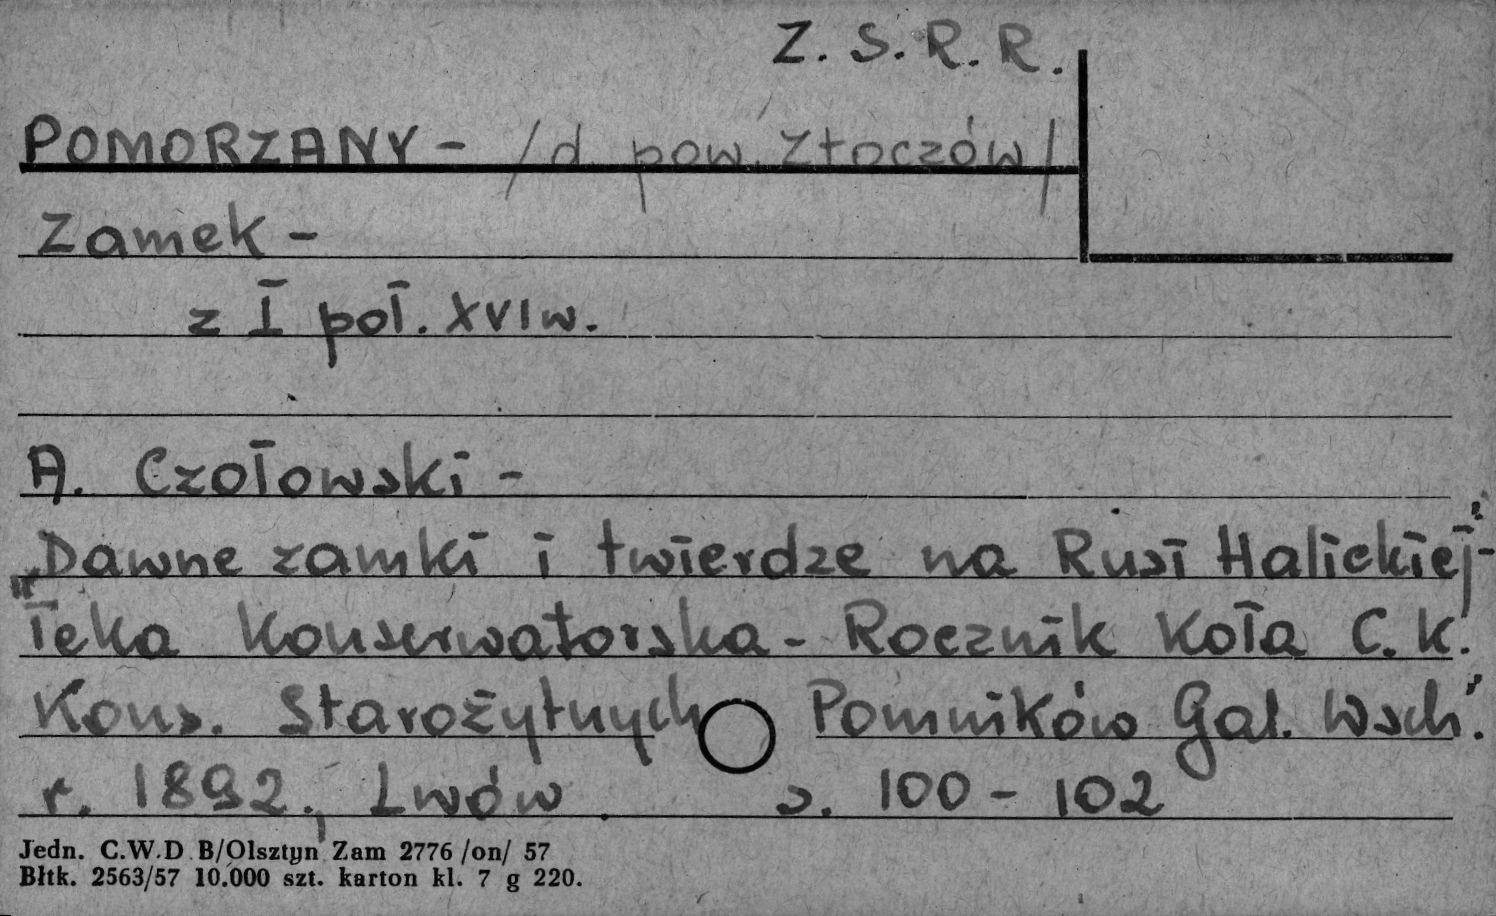 Z. S. R. R.
POMORZANY - /d. pow. Złoczów/
Zamek -
z I poł. XVI w.
A. Czołowski -
„Dawne zamki i twierdze na Rusi Halickiej" -
Teka Konserwatorska - Rocznik Koła C. K.
Kons. Starożytnych Pomników Gal. Wsch."
r. 1892., Lwów s. 100 - 102
Jedn. C.W.D B/Olsztyn Zam 2776 /on/ 57
Błtk. 2563/57 10.000 szt. karton kl. 7 g 220.